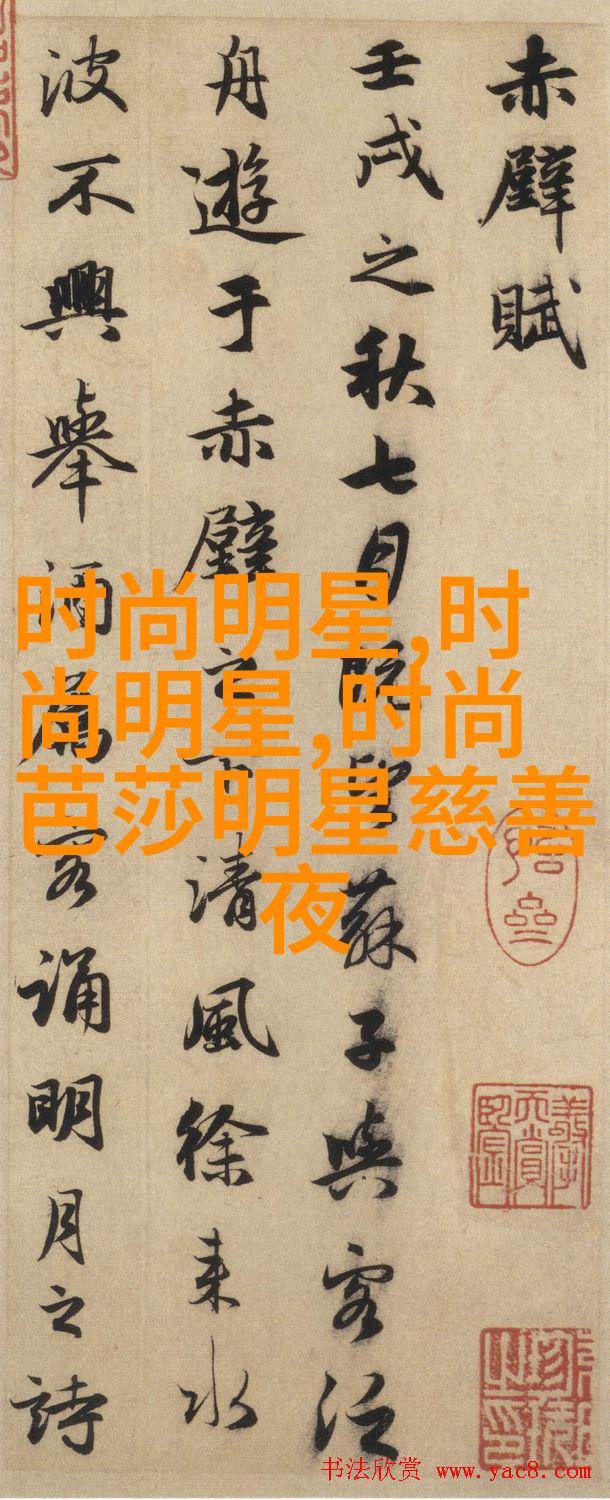 赤壁賦
壬戌之秋七月既望蘇子與客泛
舟遊于赤壁之下清風徐来水
波不興舉酒屬客誦明月之詩
时尚明星,时
尚明星,时尚
芭莎明星慈善
夜
书法欣赏 www.yac8.com